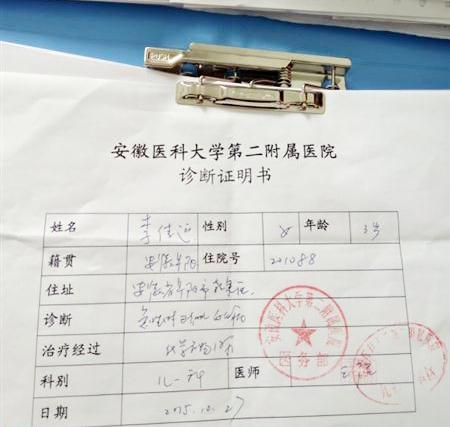 安徽医科大学第二附属医院
诊断证明书
姓名 李佳 性别 女 年龄 3岁
籍贯 安徽阜阳 住院号 201088
住址 安徽省阜阳市
诊断 急性淋巴细胞白血病
治疗经过 化学药物
科别 儿一科 医师 王
日期 2015.12.27
安徽医科大学第二附属医院
医务部